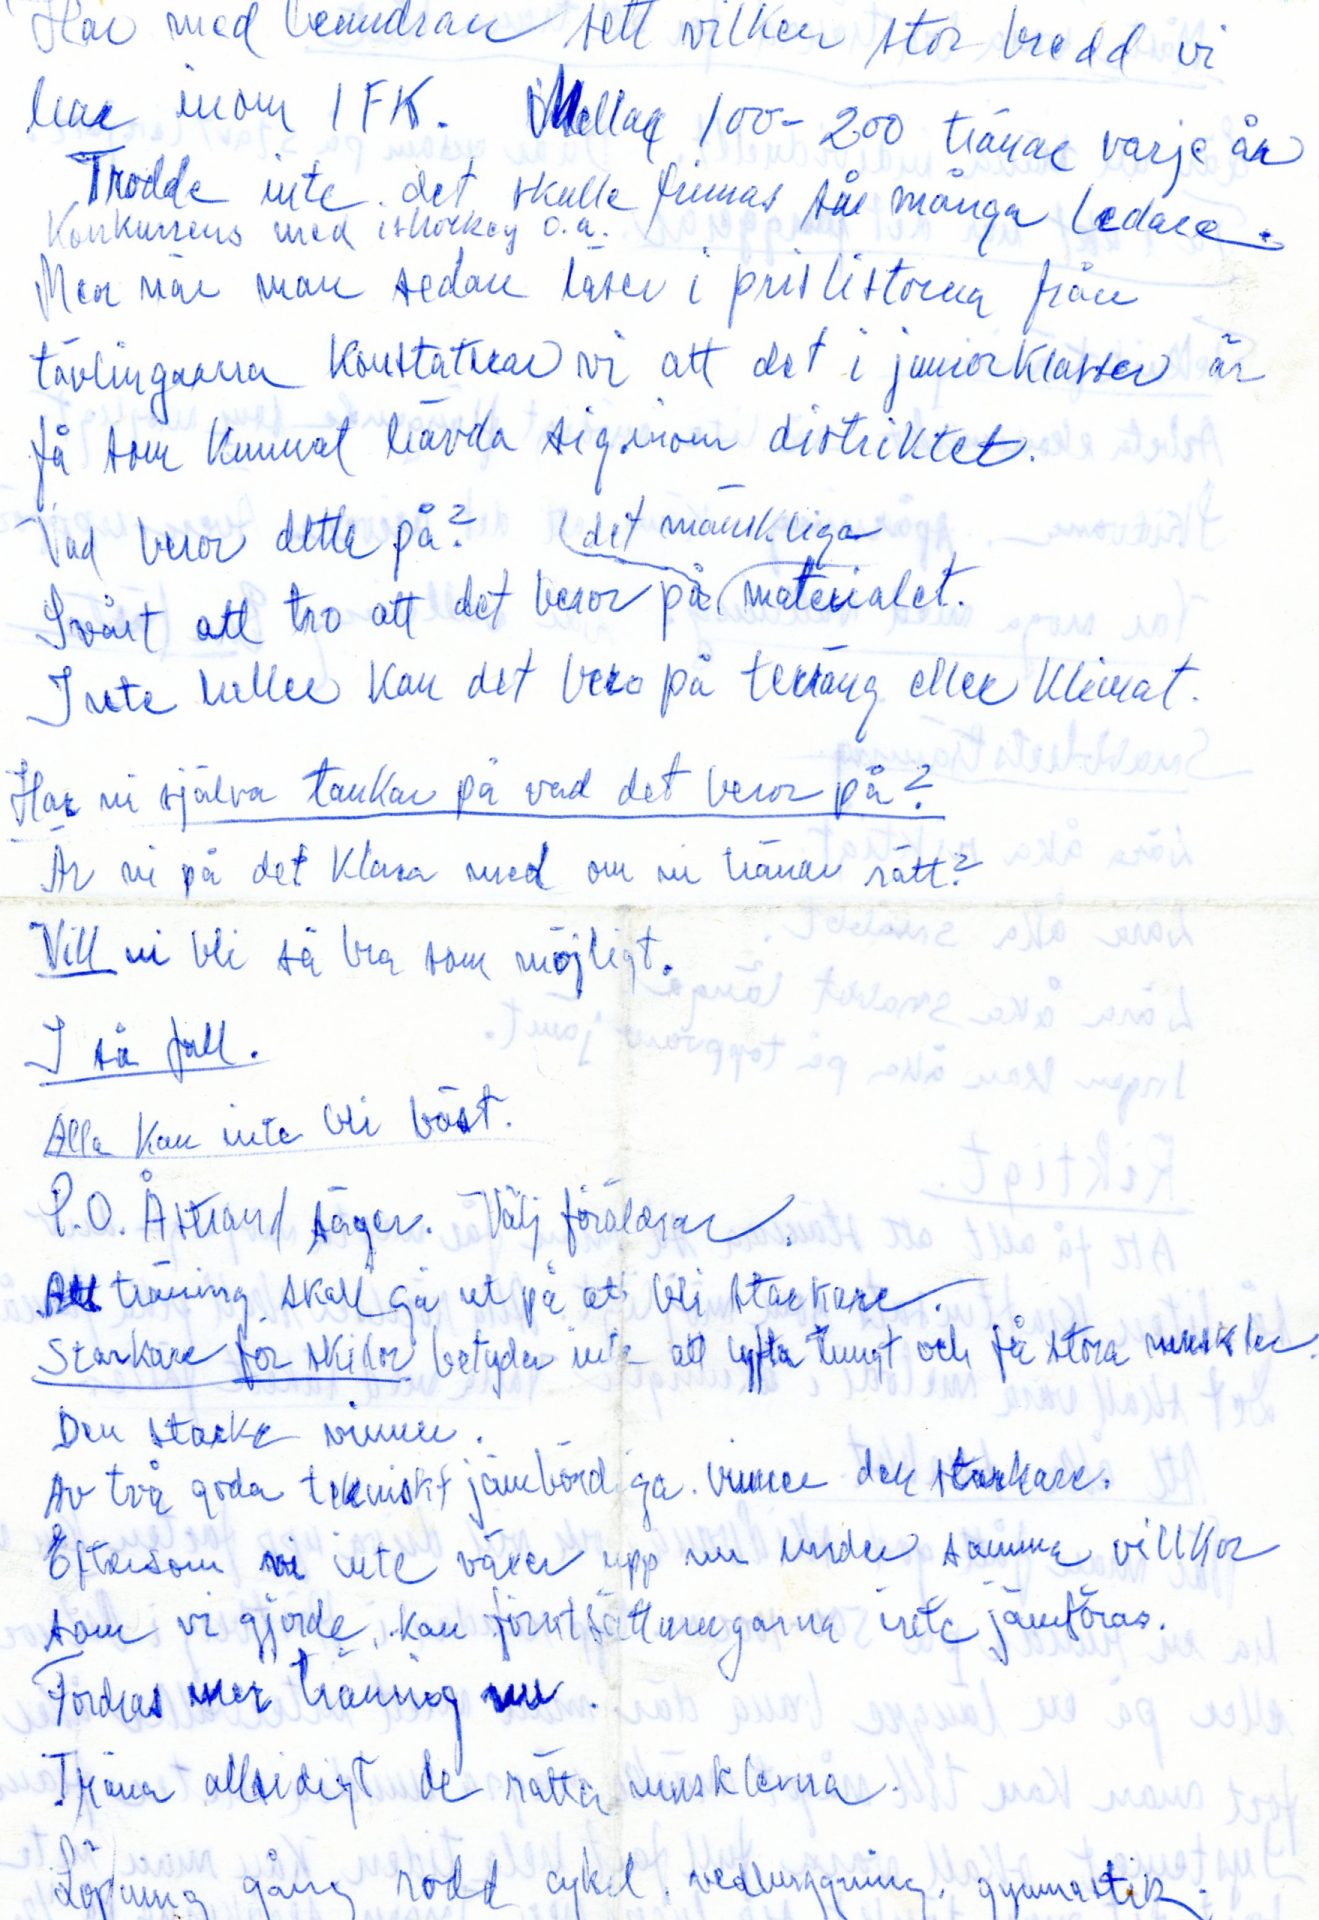 Har med beundran sett vilken stor bredd vi
har inom IFK. Mellan 100-200 tränar varje år
Trodde inte det skulle finnas så många ledare.
Konkurrens med ishockey o.a.
Men när man sedan läser i prislistorna från
tävlingarna konstaterar vi att det i juniorklasser är
få som kunnat hävda sig inom distriktet.
Vad beror detta på?
det mänskliga
Svårt att tro att det beror på materialet.
Inte heller kan det bero på terräng eller klimat.
Har ni själva tankar på vad det beror på?
Är ni på det klara med om ni tränar rätt?
Vill ni bli så bra som möjligt.
I så fall.
Alla kan inte bli bäst.
P.O. Åstrand säger. Välj föräldrar.
All träning skall gå ut på att bli starkare.
Starkare för skidor betyder inte att lyfta tungt och få stora muskler.
Den starke vinner.
Av två goda tekniskt jämbördiga vinner den starkare.
Eftersom ni inte växer upp nu under samma villkor
som vi gjorde, kan förutsättningarna inte jämföras.
Fordras mer träning nu.
Träna allsidigt de rätta musklerna.
Löpning gång rodd cykel. vedhuggning. gymnastik.